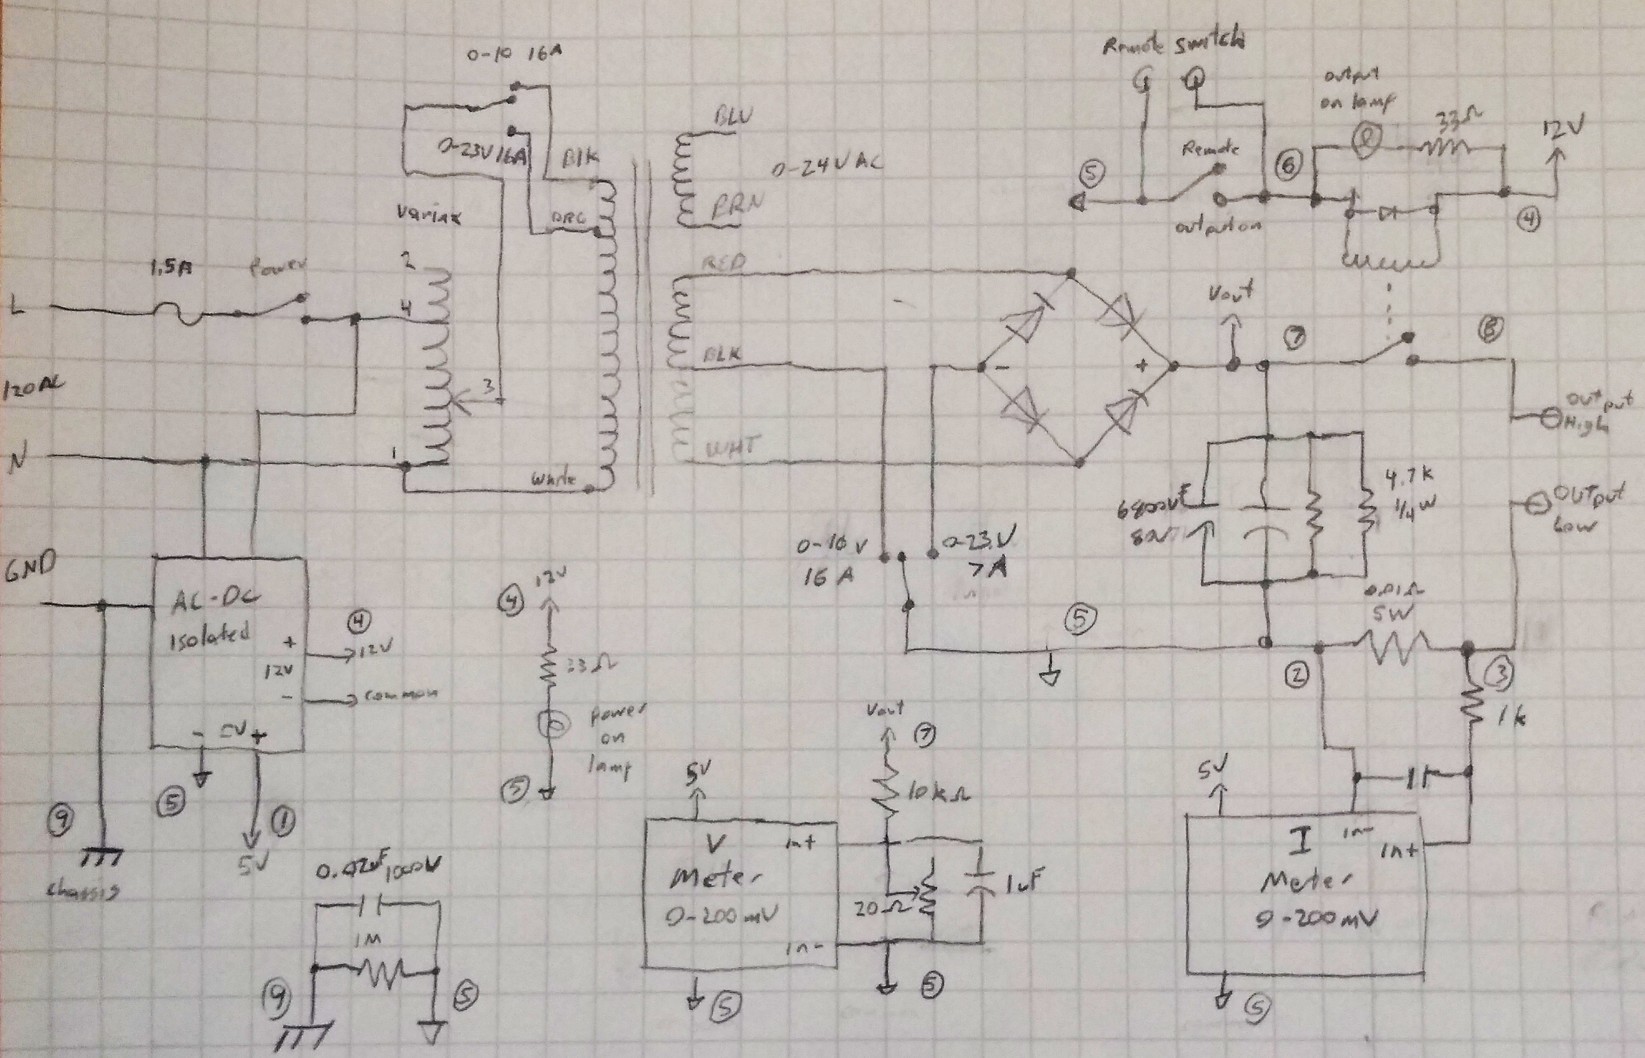 Remote switch
0-10 16A
output
on lamp
33Ω
12V
BLU
0-23V 16A
Blk
0-24V AC
Remote
⑥
⑤
BRN
ORG
Variac
output on
④
1.5A
Power
2
RED
L
4
Vout
⑦
⑧
BLK
-
+
120AC
3
Output
High
N
1
WHT
White
4.7k
1/4W
6800uF
80V
Output
Low
0-10V
16A
0-23V
7A
GND
0.01Ω
5W
AC-DC
isolated
④
12V
④
12V
+
12V
-
common
33Ω
⑤
②
③
1k
- 5V +
Power
on
lamp
Vout
⑦
⑤
①
5V
⑤
5V
10kΩ
5V
⑨
chassis
V
Meter
0-200mV
in+
in-
20Ω
1uF
I
Meter
0-200mV
in-
in+
0.02uF 1000V
1M
⑨
⑤
⑤
⑤
⑤